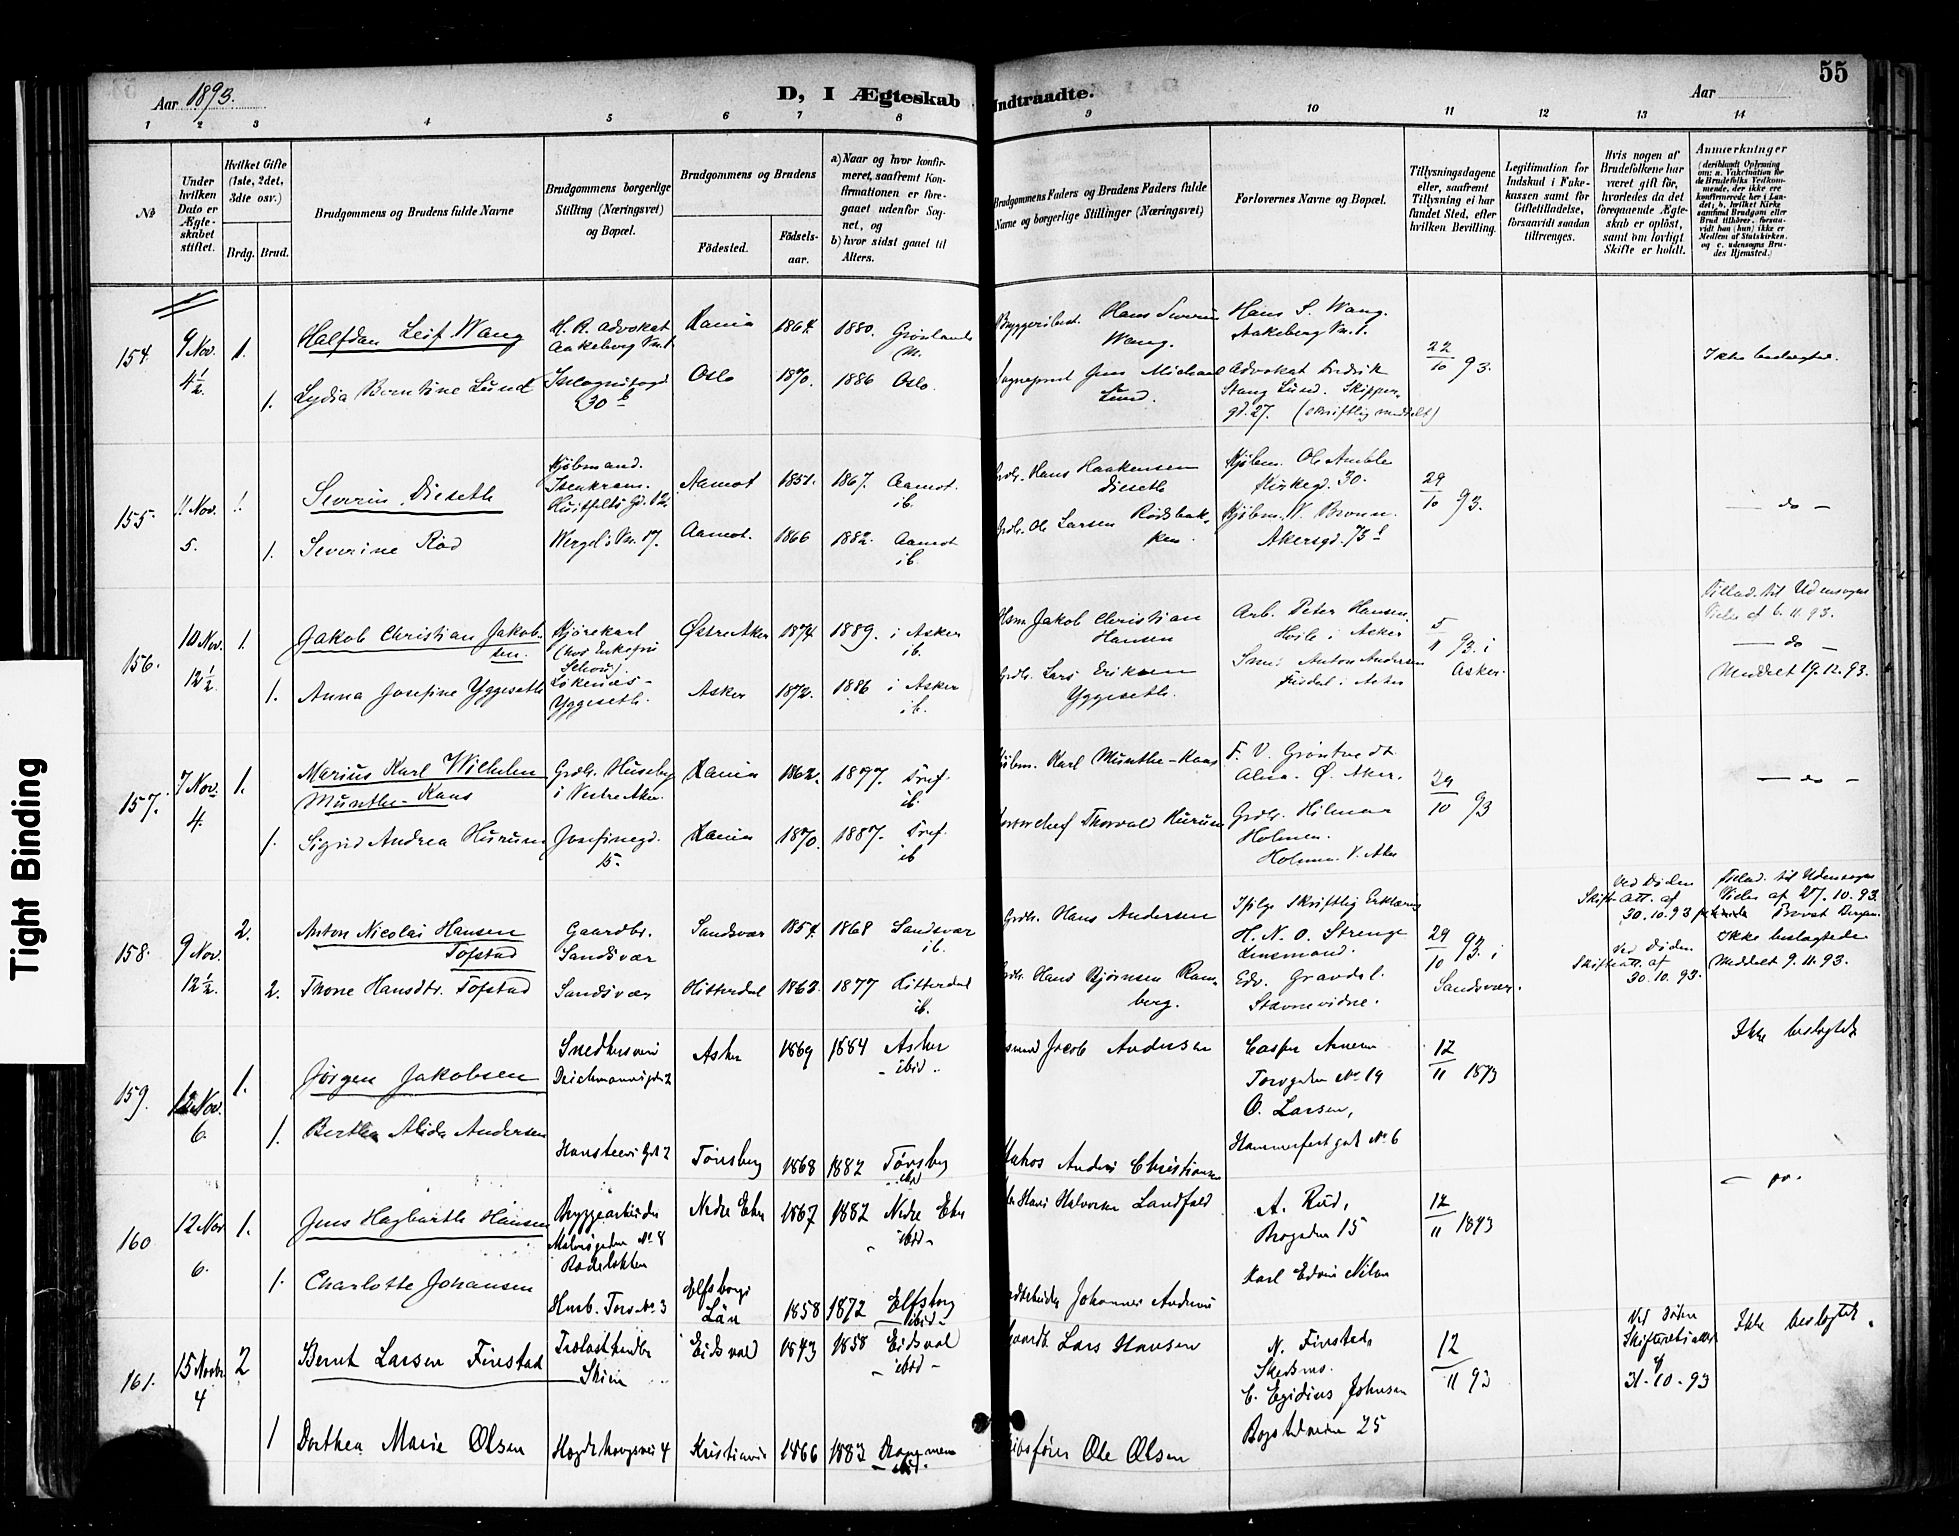 Tight Binding
Aar 1893.
D, I Ægteskab
Indtraadte.
Aar
55
1 2 3 4 5 6 7 8 9 10 11 12 13 14
№
Under hvilken Dato er Ægteskabet stiftet.
Hvilket Gifte (1ste, 2det, 3dte osv.)
Brdg. Brud.
Brudgommens og Brudens fulde Navne
Brudgommens borgerlige Stilling (Næringsvei) og Bopæl.
Brudgommens og Brudens
Födested.
Födsels-aar.
a) Naar og hvor konfirmeret, saafremt Konfirmationen er foregaaet udenfor Sognet, og
b) hvor sidst gaaet til Alters.
Brudgommens Faders og Brudens Faders fulde Navne og borgerlige Stillinger (Næringsvei)
Forlovernes Navne og Bopæl.
Tillysningsdagene eller, saafremt Tillysning ei har fundet Sted, efter hvilken Bevilling.
Legitimation for Indskud i Enkekassen samt for Giftetilladelse, forsaavidt saadan tiltrænges.
Hvis nogen af Brudefolkene har været gift för, hvorledes da det foregaaende Ægteskab er oplöst, samt om lovligt Skifte er holdt.
Anmærkninger
154. 9 Nov. 4½. 1. Halfdan Leif Wang
H. R. Advokat Aakeberg Vn. 1. Kania 1864. 1880. Grønland
Bryggeribest. Hans Severin Wang.
Hans S. Wang. Aakeberg Vn. 1.
22/10 93.
Ikke beslægtede.
1. Lydia Berntine Lund
30 b Oslo 1870. 1886 Oslo.
Sogneprest Jens Michael Lund.
Advokat Fredrik Stang Lund. Skippergd. 27. (skriftlig meddelt)
155. 11 Nov. 5. 1. Severin Dieseth
Kjøbmand. Huitfelts Gd. 12 Aamot 1851. 1867. Aamot. ib.
Grdbr. Hans Haakensen Dieseth
Kjøbm. Ole Amble Kirkegd. 30.
29/10 93.
— do —
1. Severine Rød
Wergel's Vn. 17. Aamot. 1866 1882. Aamot ib.
Grdbr. Ole Larsen Rødsbakken
Kjøbm. W. Bronn. Akersgd. 73
156. 10 Nov. 12½ 1. Jakob Christian Jakobsen.
Kjørekarl (hos Enkefru Schou). Østre Aker 1874 1889. i Asker ib.
Hsm Jakob Christian Hansen
Arb. Peter Hansen. Hvile i Asker
5/11 93. i Asker.
Tillad. til Udensogns Vielse af 6. 11. 93.
— do —
Meddelt 19. 12. 93.
1. Anna Josefine Yggeseth
Løkenæs - Yggeseth. Asker 1872. 1886 i Asker ib.
Grdbr. Lars Eriksen Yggeseth.
Smed Anton Andersen i Asker
157. 7 Nov. 4. 1. Marius Karl Wilhelm Munthe-Kaas
Grdbr. Huseby i Vestre Aker. Kania 1862. 1877. Tref. ib.
Kjøbm. Karl Munthe-Kaas
F. V. Grøntvedt Alna. Ø. Aker.
29/10 93
— do —
1. Sigrid Andrea Hurum
Josefinegd. 15. Kania 1870. 1887. Tref. ib
Thorvald Hurum
Grdbr. Hilmar Holmen. Holmen. V. Aker
158. 9 Nov. 12½. 2. Anton Nicolai Hansen Tofstad
Gaardbr. Sandsvær Sandsvær 1854. 1868 Sandsvær ib.
Grdbr. Hans Andersen
Ifølge Skriftlig Erklæring H. N. O. Strenge Lensmand.
29/10 93. i Sandsvær.
Ved Døden Skifteatt. af 30. 10. 93
Tillad. til Udensogns Vielse af 27. 10. 93.
Ikke beslægtede
Meddelt 9. 11. 93.
2. Thone Hansdtr. Tofstad
Sandsvær Hitterdal 1862. 1877 Hitterdal ib.
Grdbr. Hans Bjørnsen Ramberg.
Edv. Gravdal. Stavnevidne.
Ved Døden Skifteatt. af 30. 10. 93.
159. 12 Nov. 6. 1. Jørgen Jakobsen
Snedkersvend Deichmannsgd 2 Asker 1869 1884 Asker ibid..
Jacob Andersen
Casper Torvgaden No 19
12/11 1893
Ikke beslægtede
1. Berthea Alida Andersen
Hansteens Gd. 2 Tønsberg 1868 1882 Tønsberg ibid
Matros Anders Christiansen
O. Larsen, Hammerfestgat No 6
160 12 Nov 6. 1. Jens Hagbarth Hansen
Bryggearbeider No 8 Rodeløkken Nedre Eker 1867 1882 Nedre Eker ibid
Hans Halvorsen Landfald
A. Rud, Brogaden 15
12/11 1893
— do.
1. Charlotte Johansen
Husb. Torv No 3 Elfsborgs Län 1858 1872 Elfsborg ibid
Johannes
Karl Edvin Nilsen
161. 15 Novbr 4 2 Bernt Larsen Finstad
Trælasthandler Skien Eidsvold 1843 1858 Eidsvold ibid
Gaardb. Lars Hansen
N. Finstad, Skedsmo.
12/11 93
Ved Døden af 31-10-93
Ikke beslægtede.
1 Dorthea Marie Olsen
Hegdehaugsvei 4 Kristiania 1866 1883 Drammen ibid.
Skibsfører Ole Olsen
C. Egidius Johnsen Bogstadveien 25